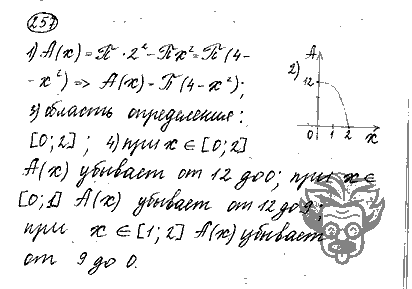 257
1) A(x) = П · 2² - Пx² = П(4-
- x²) => A(x) - П(4 - x²);
2)
A
12
0 1 2 x
3) область определения:
[0; 2] ; 4) при x ∈ [0; 2]
A(x) убывает от 12 до 0; при x ∈
[0; 1] A(x) убывает от 12 до 9;
при x ∈ [1; 2] A(x) убывает
от 9 до 0.